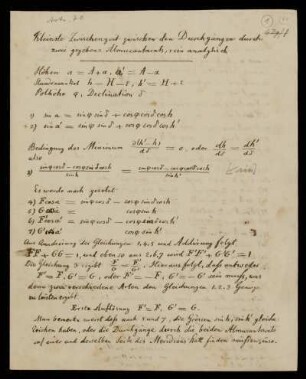 Kleinste Zwischenzeit zwischen den Durchgängen durch
zwei gegebene Almucantarats, rein analytisch
Höhen a = A + α, a' = A − α
Stundenwinkel h = H − τ, h' = H + τ
Polhöhe φ, Declination δ
1) sin a = sin φ sin δ + cos φ cos δ cos h
2) sin a' = sin φ sin δ + cos φ cos δ cos h'
Bedingung des Minimum d(h'−h)/dδ = 0, oder dh/dδ = dh'/dδ
also
3)
Es werde noch gesetzt
4) F cos a = sin φ cos δ − cos φ sin δ cos h
5) G cos a = cos φ sin h
6) F' cos a' = sin φ cos δ − cos φ sin δ cos h'
7) G' cos a' = cos φ sin h'
Aus Quadrirung der Gleichungen und Addirung folgt,
FF + GG = 1, und eben so aus 2.6.7 F'F' + G'G' = 1
Die Gleichung 3 ergibt F/G = F'/G'. Hieraus folgt, daß entweder
F' = F, G' = G, oder F' = −F, G' = −G sein muß, also
dem zwei verschiedene Arten den Gleichungen 1.2.3 Genüge
zu leisten ergibt.
Erste Auflösung F' = F, G' = G.
Man bemerke zuerst daß nach 5 und 7, die Grössen sin h, sin h' gleiche
Zeichen haben, also die Durchgänge durch die beiden Almucantarats
auf einer und derselben Seite des Meridians statt finden